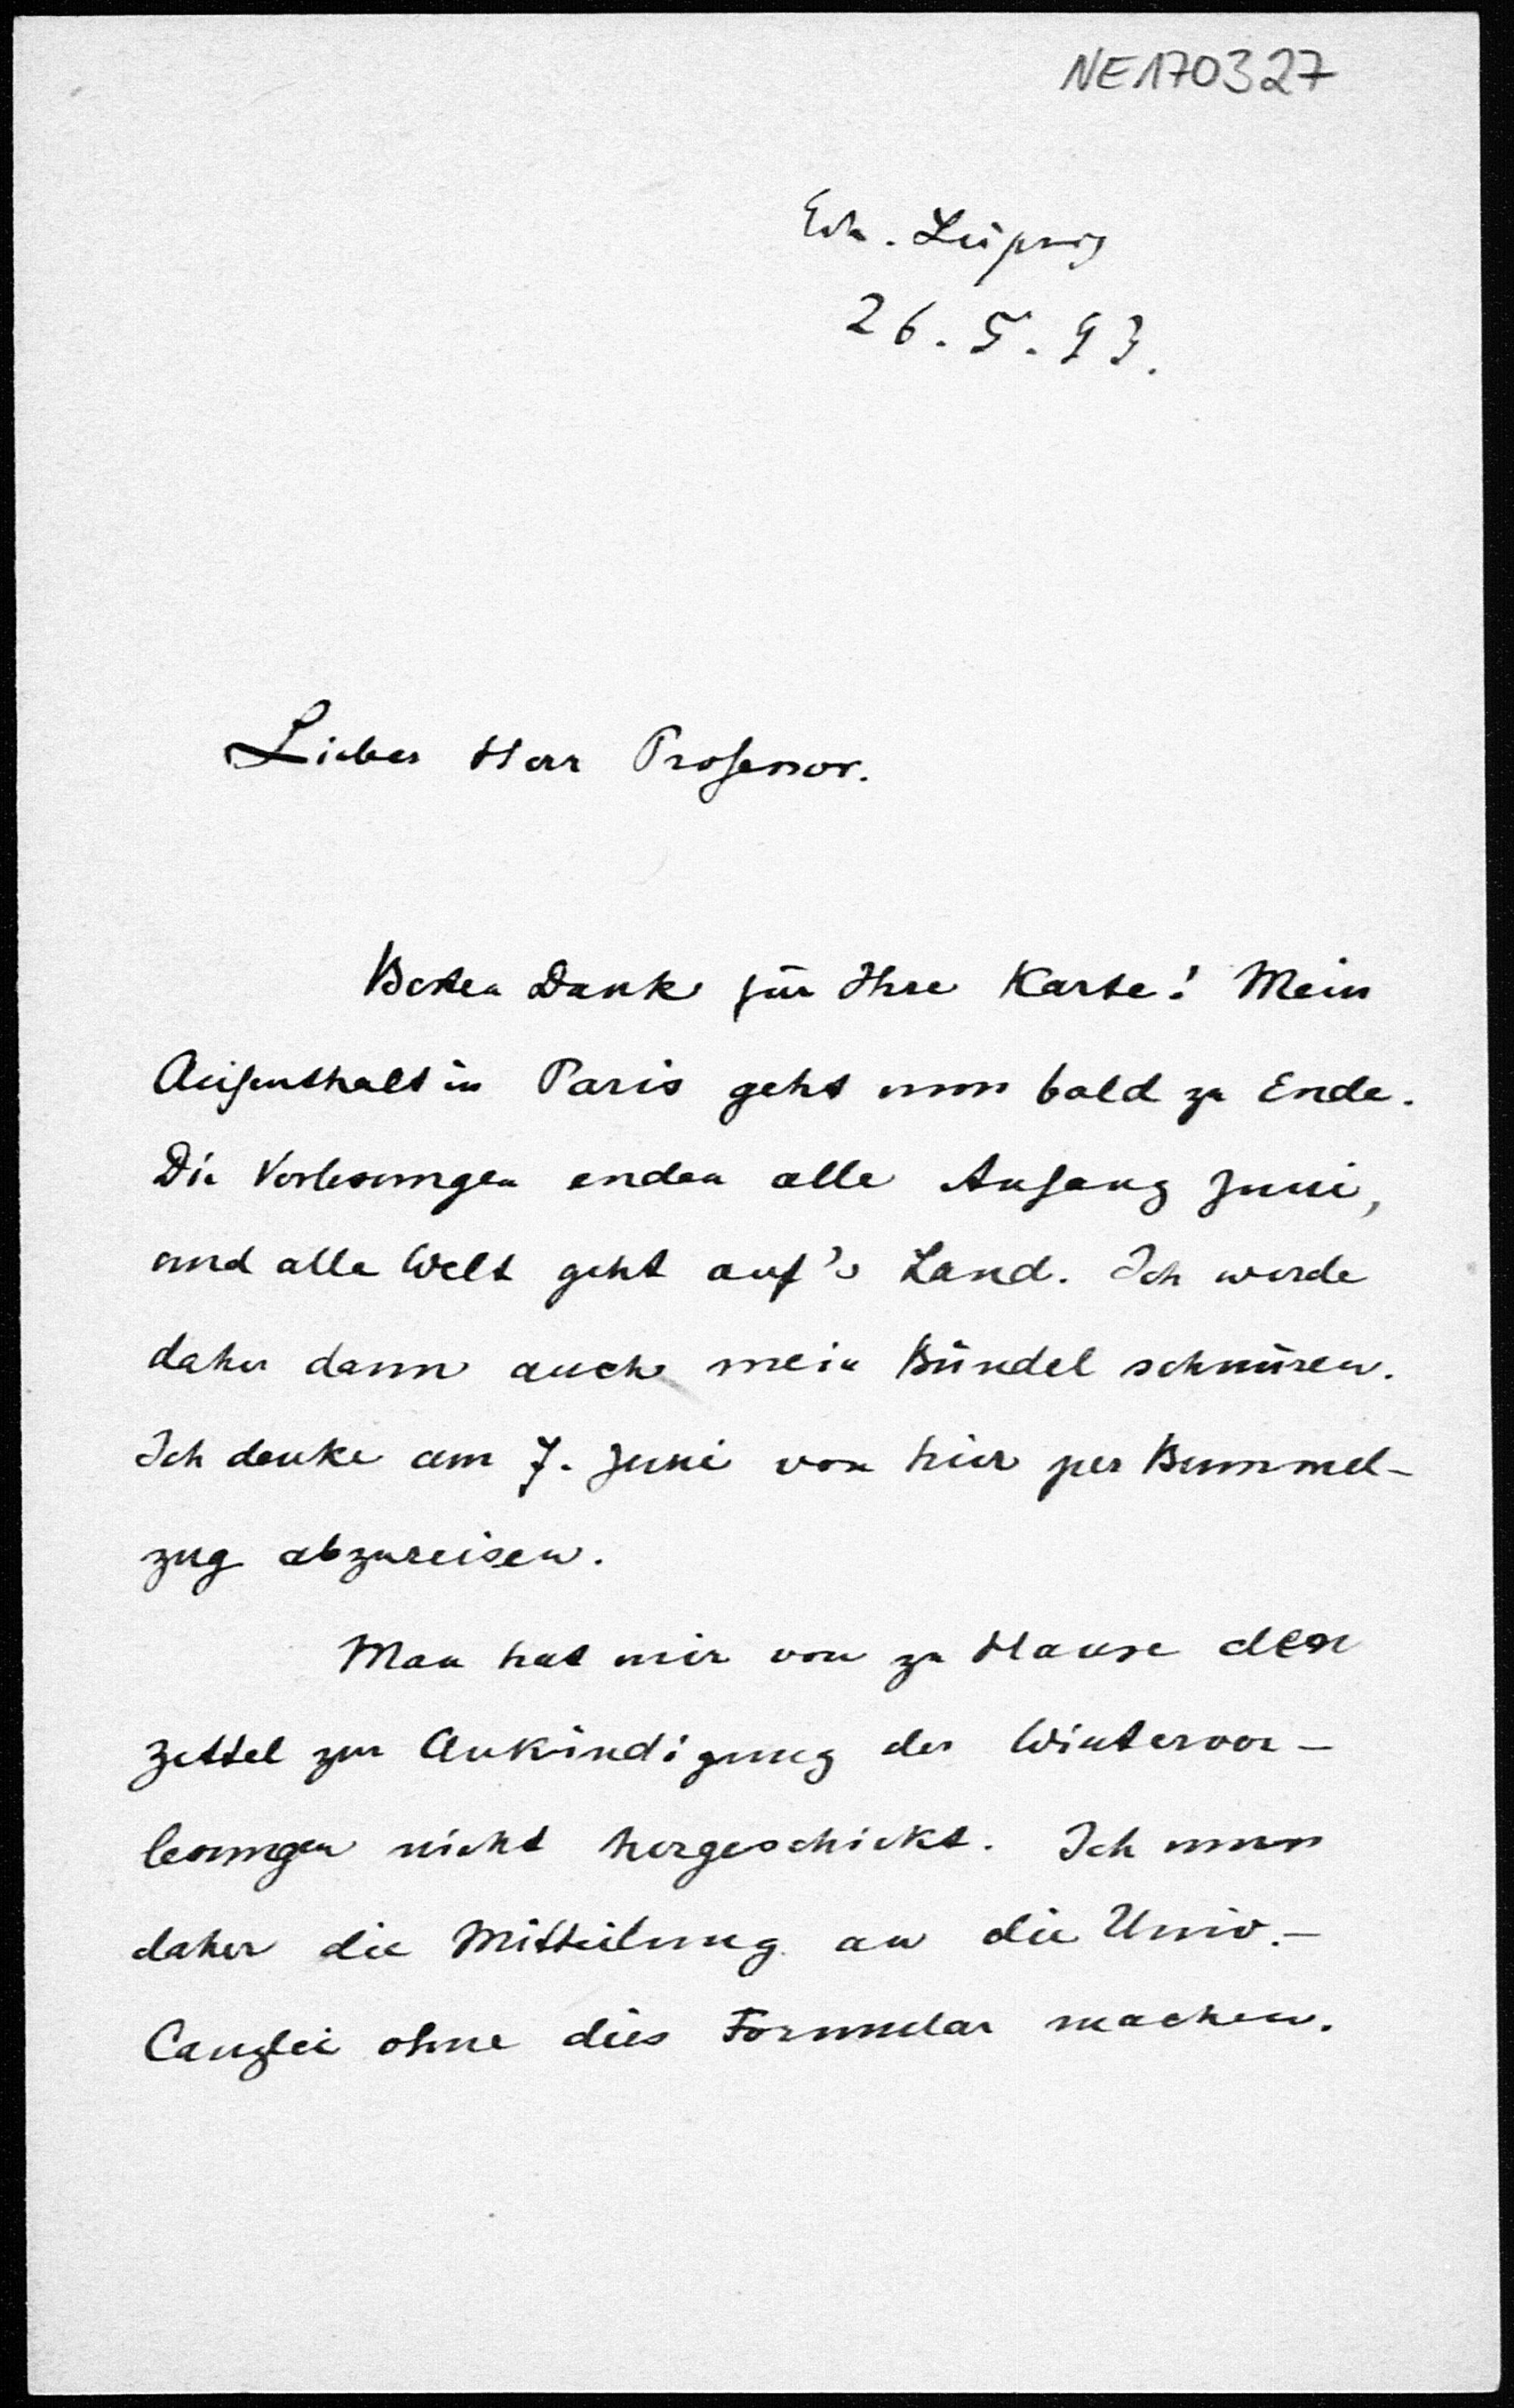 NE170327
Erh. Leipzig
26.5.93.
Lieber Herr Professor.
Besten Dank für Ihre Karte! Mein
Aufenthalt in Paris geht nun bald zu Ende.
Die Vorlesungen enden alle Anfang Juni,
und alle Welt geht auf's Land. Ich werde
daher dann auch mein Bündel schnüren.
Ich denke am 7. Juni von hier per Bummel-
zug abzureisen.
Man hat mir von zu Hause den
Zettel zur Ankündigung der Wintervor-
lesungen nicht hergeschickt. Ich muss
daher die Mittheilung an die Univ.-
Canzlei ohne dies Formular machen.